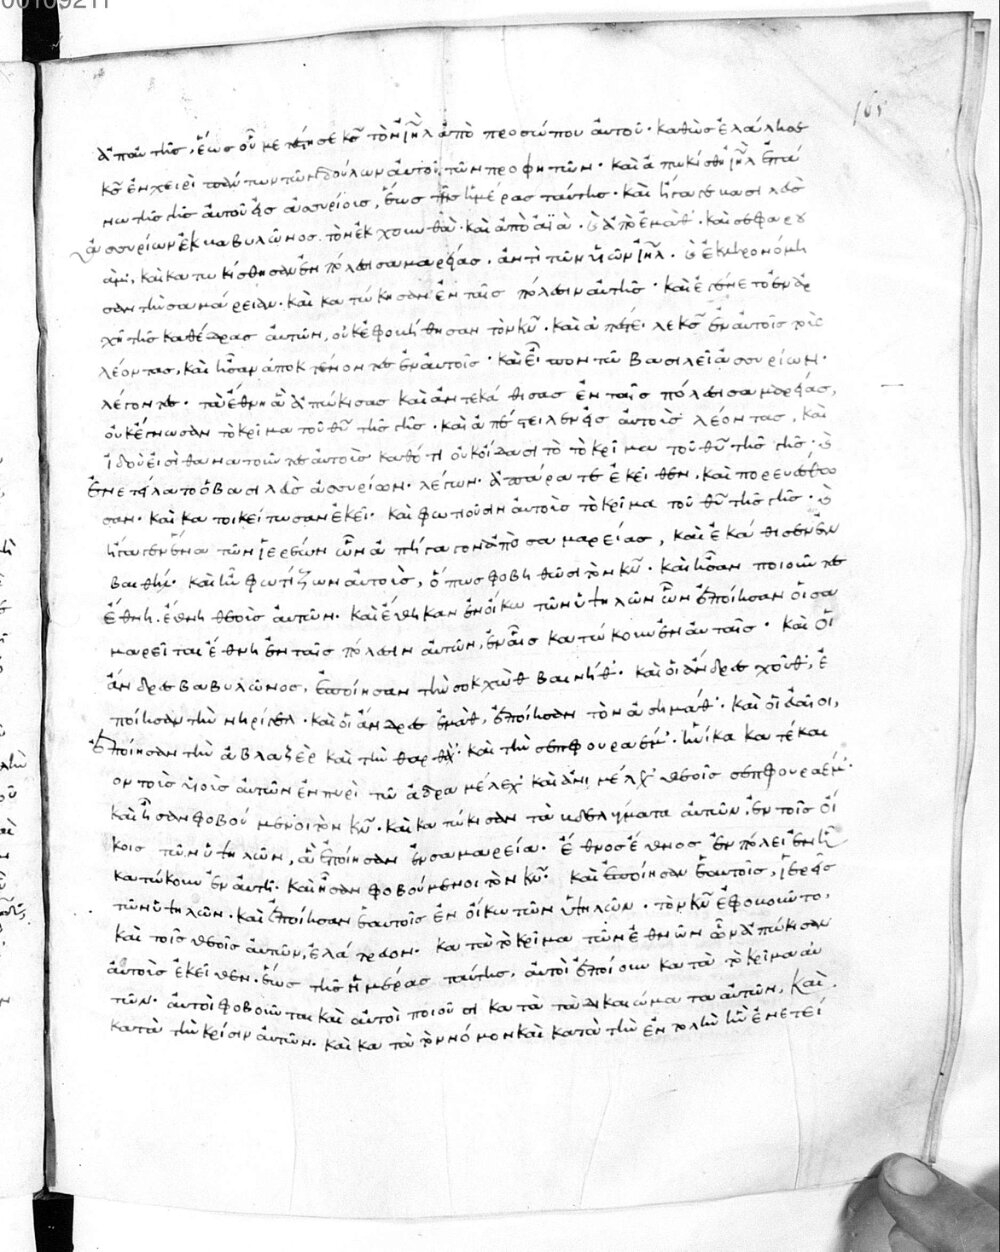 00109211
165
ἀπ' αὐτῆς, ἕως οὗ μετέστησε κς τὸν ιηλ ἀπὸ προσώπου αὐτοῦ· καθὼς ἐλάλησε
κς ἐν χειρὶ πάντων τῶν δούλων αὐτοῦ τῶν προφητῶν· καὶ ἀπῳκίσθη ιηλ ἐπά
νω τῆς γῆς αὐτοῦ εἰς ἀσσυρίους, ἕως τῆς ἡμέρας ταύτης· καὶ ἤγαγε βασιλεὺς
ἀσσυρίων ἐκ βαβυλῶνος τὸν ἐκ χουνθὰ· καὶ ἀπὸ ἀϊὰ· καὶ ἀπὸ ἐμὰθ· καὶ σεφαρου
άιμ, καὶ κατῳκίσθησαν ἐν πόλεσι σαμαρείας, ἀντὶ τῶν υἱῶν ιηλ· καὶ ἐκληρονόμη
σαν τὴν σαμάρειαν· καὶ κατῴκησαν ἐν ταῖς πόλεσιν αὐτῆς· καὶ ἐγένετο ἐν ἀρ
χῇ τῆς καθέδρας αὐτῶν, οὐκ ἐφοβήθησαν τὸν κν· καὶ ἀπέστειλε κς ἐν αὐτοῖς τοὺς
λέοντας, καὶ ἦσαν ἀποκτένοντες ἐν αὐτοῖς· καὶ εἶπον τῶ βασιλεῖ ἀσσυρίων·
λέγοντες· τὰ ἔθνη ἃ ἀπῴκισας καὶ ἀντεκάθισας ἐν ταῖς πόλεσι σαμαρείας,
οὐκ ἔγνωσαν τὸ κρίμα τοῦ θυ τῆς γῆς· καὶ ἀπέστειλεν εἰς αὐτοὺς λέοντας, καὶ
ἰδού εἰσὶ θανατοῦντες αὐτοὺς καθότι οὐκ οἴδασι τὸ κρίμα τοῦ θυ τῆς γῆς· καὶ
ἐνετείλατο ὁ βασιλεὺς ἀσσυρίων· λέγων· ἀπάρατε ἐκεῖθεν, καὶ πορευέσθω
σαν· καὶ κατοικείτωσαν ἐκεῖ· καὶ φωτιοῦσιν αὐτοῖς τὸ κρίμα τοῦ θυ τῆς γῆς· καὶ
ἤγαγεν ἕνα τῶν ἱερέων ὧν ἀπήγαγον ἀπὸ σαμαρείας, καὶ ἐκάθισεν ἐν
βαιθήλ· καὶ ἦν φωτίζων αὐτοῖς, ὅπως φοβηθῶσι τὸν κν· καὶ ἦσαν ποιοῦντες
ἔθνη ἔθνη θεοῖς αὐτῶν· καὶ ἔθηκαν ἐν οἴκω τῶν ὑψηλῶν ὧν ἐποίησαν οἱ σα
μαρεῖται ἔθνη ἐν ταῖς πόλεσιν αὐτῶν, ἐν αἷς κατῴκουν ἐν αὐταῖς· καὶ οἱ
ἄνδρες βαβυλῶνος, ἐποίησαν τὴν σοκχὼθ βαινήθ· καὶ οἱ ἄνδρες χούθ, ἐ
ποίησαν τὴν νηριγελ· καὶ οἱ ἄνδρες ἐμάθ, ἐποίησαν τὸν ἀσημάθ· καὶ οἱ εὐαῖοι,
ἐποίησαν τὴν ἀβλαζὲρ καὶ τὴν θαρθὰκ· καὶ τὴν σεπφουραείμ· ἡνίκα κατέκαι
ον τοὺς υἱοὺς αὐτῶν ἐν πυρὶ τῶ ἀδραμέλεχ καὶ ἀνιμέλεχ θεοῖς σεπφουραείμ·
καὶ ἦσαν φοβούμενοι τὸν κν· καὶ κατῴκισαν τὰ βδελύγματα αὐτῶν, ἐν τοῖς οἴ
κοις τῶν ὑψηλῶν, ἃ ἐποίησαν ἐν σαμαρεία· ἔθνος ἔθνος ἐν πόλει ἐν ἧ
κατῴκουν ἐν αὐτῇ· καὶ ἦσαν φοβούμενοι τὸν κν· καὶ ἐποίησαν ἑαυτοῖς, ἱερεῖς
τῶν ὑψηλῶν· καὶ ἐποίησαν ἑαυτοῖς ἐν οἴκω τῶν ὑψηλῶν· τὸν κν ἐφοβοῦντο,
καὶ τοῖς θεοῖς αὐτῶν, ἐλάτρευον· κατὰ τὸ κρίμα τῶν ἐθνῶν ὧν ἀπῴκισαν
αὐτοὺς ἐκεῖθεν, ἕως τῆς ἡμέρας ταύτης, αὐτοὶ ἐποίουν κατὰ τὸ κρίμα αὐ
τῶν· αὐτοὶ φοβοῦνται καὶ αὐτοὶ ποιοῦσι κατὰ τὰ δικαιώματα αὐτῶν, καὶ
κατὰ τὴν κρίσιν αὐτῶν· καὶ κατὰ τὸν νόμον καὶ κατὰ τὴν ἐντολὴν ἣν ἐνετεί